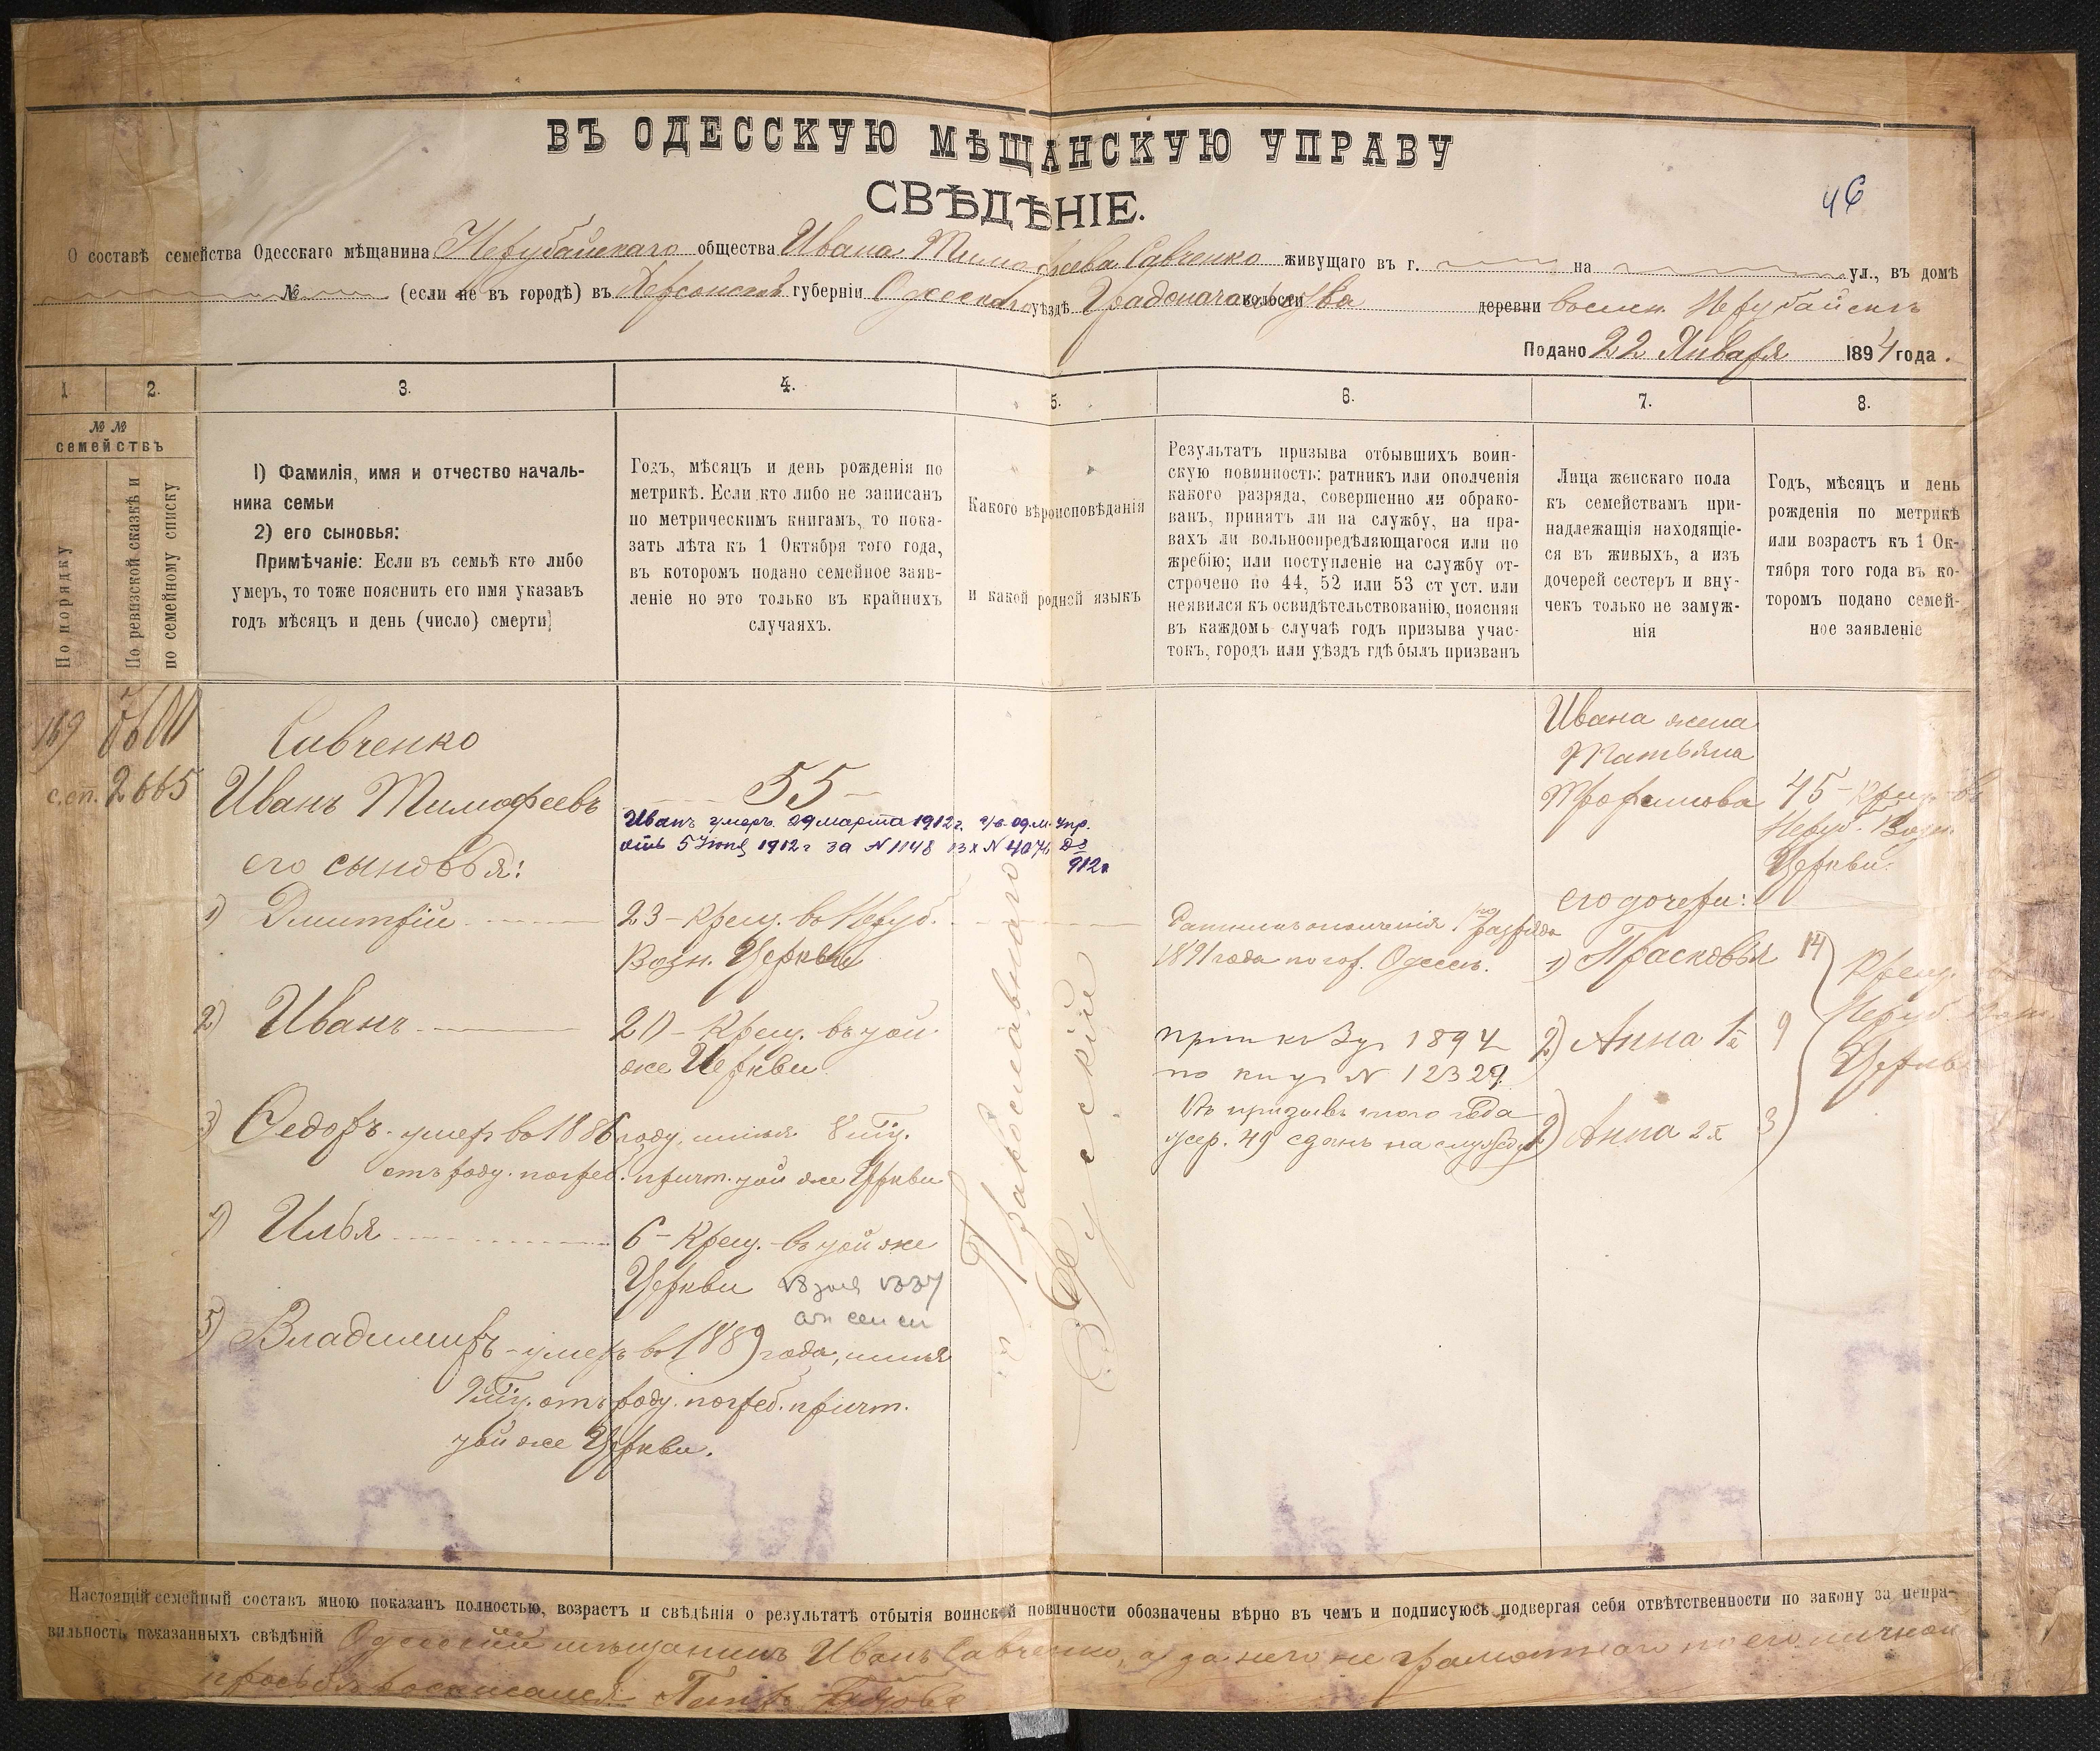 ВЪ ОДЕССКУЮ МѢЩАНСКУЮ УПРАВУ
СВѢДѢНІЕ.
46
О составѣ семейства Одесскаго мѣщанина Нерубайскаго общества Ивана Тимофѣева Савченко живущаго въ г. на ул., въ домѣ
№ (если не въ городѣ) въ Херсонской губерніи Одесскаго уѣздѣ Градоначальства волости деревни Нерубайскъ
Подано 22 Января 1894 года.
1. 2. 3. 4. 5. 6. 7. 8.
№ №
семействъ
По порядку
По ревизской сказкѣ и
по семейному списку
1) Фамилія, имя и отчество началь-
ника семьи
2) его сыновья:
Примѣчаніе: Если въ семьѣ кто либо
умеръ, то тоже пояснить его имя указавъ
годъ мѣсяцъ и день (число) смерти]
Годъ, мѣсяцъ и день рожденія по
метрикѣ. Если кто либо не записанъ
по метрическимъ книгамъ, то пока-
зать лѣта къ 1 Октября того года,
въ которомъ подано семейное заяв-
леніе но это только въ крайнихъ
случаяхъ.
Какого вѣроисповѣданія
и какой родной языкъ
Результатъ призыва отбывшихъ воин-
скую повинность: ратникъ или ополченія
какого разряда, совершенно ли обрако-
ванъ, принятъ ли на службу, на пра-
вахъ ли вольноопредѣляющагося или по
жребію; или поступленіе на службу от-
строчено по 44, 52 или 53 ст уст. или
неявился къ освидѣтельствованію, поясняя
въ каждомъ случаѣ годъ призыва учас-
токъ, городъ или уѣздъ гдѣ былъ призванъ
Лица женскаго пола
къ семействамъ при-
надлежащія находящіе-
ся въ живыхъ, а изъ
дочерей сестеръ и вну-
чекъ только не замуж-
нія
Годъ, мѣсяцъ и день
рожденія по метрикѣ
или возрастъ къ 1 Ок-
тября того года въ ко-
торомъ подано семей-
ное заявленіе
169
с.сп. 2665
Савченко
Иванъ Тимофеевъ
его сыновья:
1) Дмитрій
2) Иванъ
3) Федоръ умеръ во 1886 году, имѣя 8 лѣт.
отъ роду. погреб. при той же Церкви
4) Илья
5) Владимиръ - умеръ во 1889 года, имѣя
отъ роду. погреб. при
той же Церкви.
55
Иванъ умеръ 29 марта 1912 г. Од. М. Упр.
отъ 5 Іюня 1912 г за N 1148 вх N 4074
912 г
23 - Крещ. въ Неруб.
Возн. Церкви
20 - Крещ. въ той
же Церкви
6 - Крещ. въ той же
Церкви
Православнаго
Русскій
Ратникъ ополченія 1го разряда
1891 года по гор. Одессѣ.
1894
по N 12329
Въ призывъ того года
жер. 49 сданъ на службу
Ивана жена
Татьяна
Трофимова
его дочери:
1) Прасковья
2) Анна 1я
3) Анна 2я
45 - Крещ. въ
Неруб. Возн.
Церкви
14
9
3
Крещ. въ
Неруб. Возн.
Церкви
Настоящій семейный составъ мною показанъ полностью, возрастъ и свѣдѣнія о результатѣ отбытія воинской повинности обозначены вѣрно въ чемъ и подписуюсь подвергая себя отвѣтственности по закону за непра-
вильность показанныхъ свѣдѣній Одесскій мѣщанинъ Иванъ Савченко, а за него не грамотнаго по его личной
просьбѣ росписался